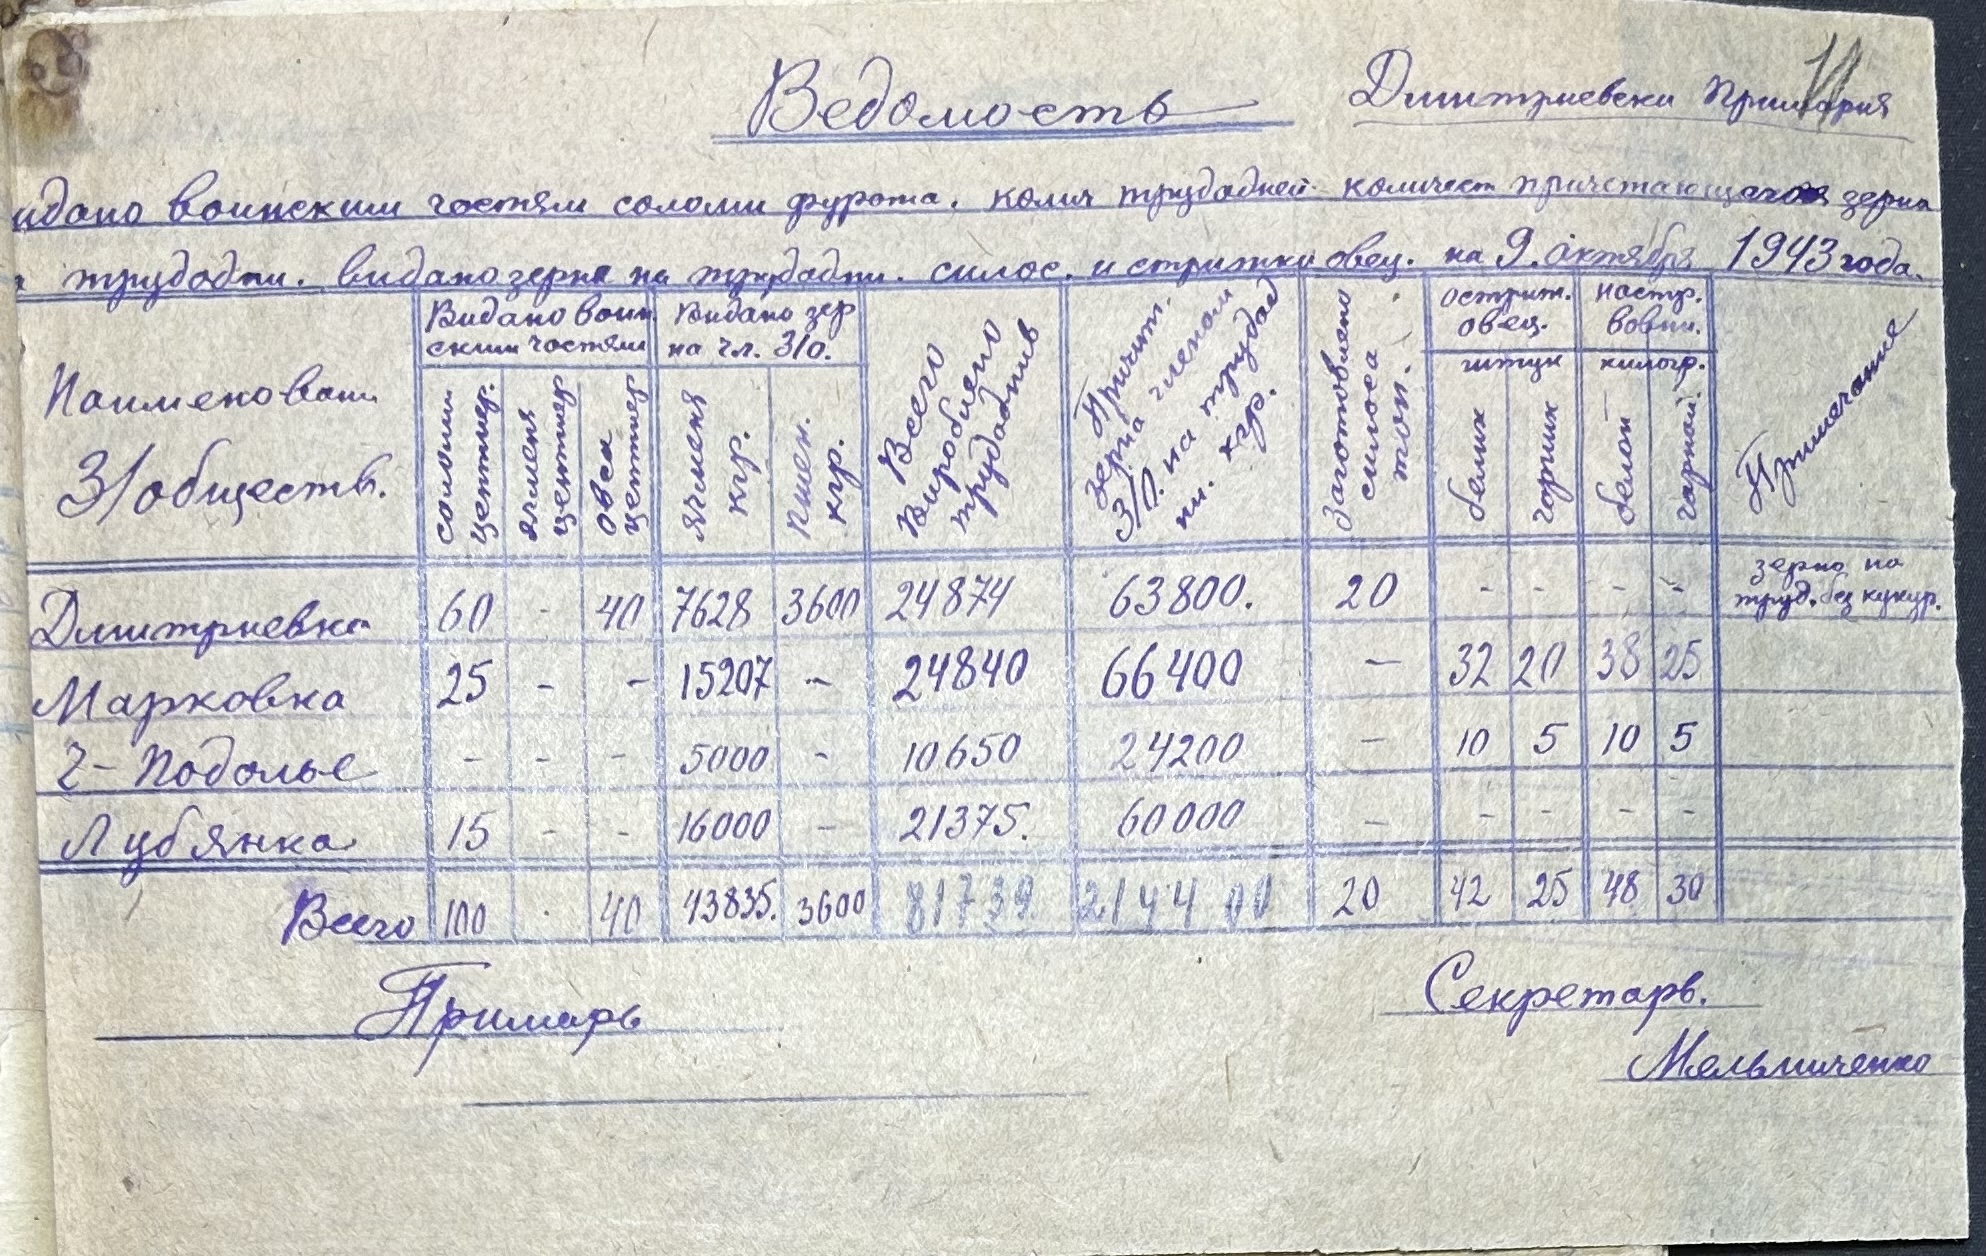 11
Ведомость
Дмитриевски Примария
идано воинским частям соломи фуража. колич трудадней количест причетающагося зерна
трудодни. видано зерна на трудадни. силос. и стрижки овец. на 9. октября 1943 года.
Наименовани З/обществ.
Видано воин. ским частям
соломи центнер.
ячменя центнер
овса центнер
Видано зер на чл. З/О.
ячменя кгр.
пшен. кгр.
Всего виробляно трудоднив
Причит. зерна членам З/О. на трудад ни. кгр.
Заготовлено силоса тон.
остриж. овец. штук
белих
чорних
настр. вовни. килогр.
белой
чорной.
Примечание
Дмитриевка 60 - 40 7628 3600 24874 63800. 20 - - - - зерно на труд. без кукур.
Марковка 25 - - 15207 - 24840 66400 - 32 20 38 25
Ч-Подолье - - - 5000 - 10650 24200 - 10 5 10 5
Лубянка 15 - - 16000 - 21375. 60000 - - - - -
Всего 100 . 40 43835. 3600 81739 214400 20 42 25 48 30
Примарь
Секретарь.
Мельниченко